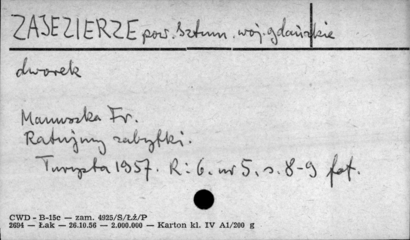 ZAJEZIERZE pow. Sztum. woj. gdańskie
dworek
Manuszka Fr.
Ratujmy zabytki.
Turysta 1957. R: 6. nr 5. s. 8-9 fot.
CWD - B-15c — zam. 4925/S/Łż/P
2694 — Łak — 26.10.56 — 2.000.000 — Karton kl. IV A1/200 g